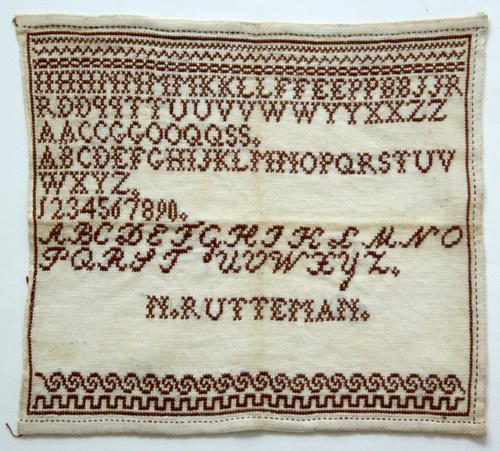 IIHHNNMMKKLLFFEEPPBBJJR
RDDGHTTUUVVWWYYXXZZ
AACCGGOOQQSS.
ABCDEFGHIJKLMNOPQRSTUV
WXYZ.
1234567890.
ABCDEFGHIKLMNO
PQRST UVWXYZ.
N.RUTTEMAN.